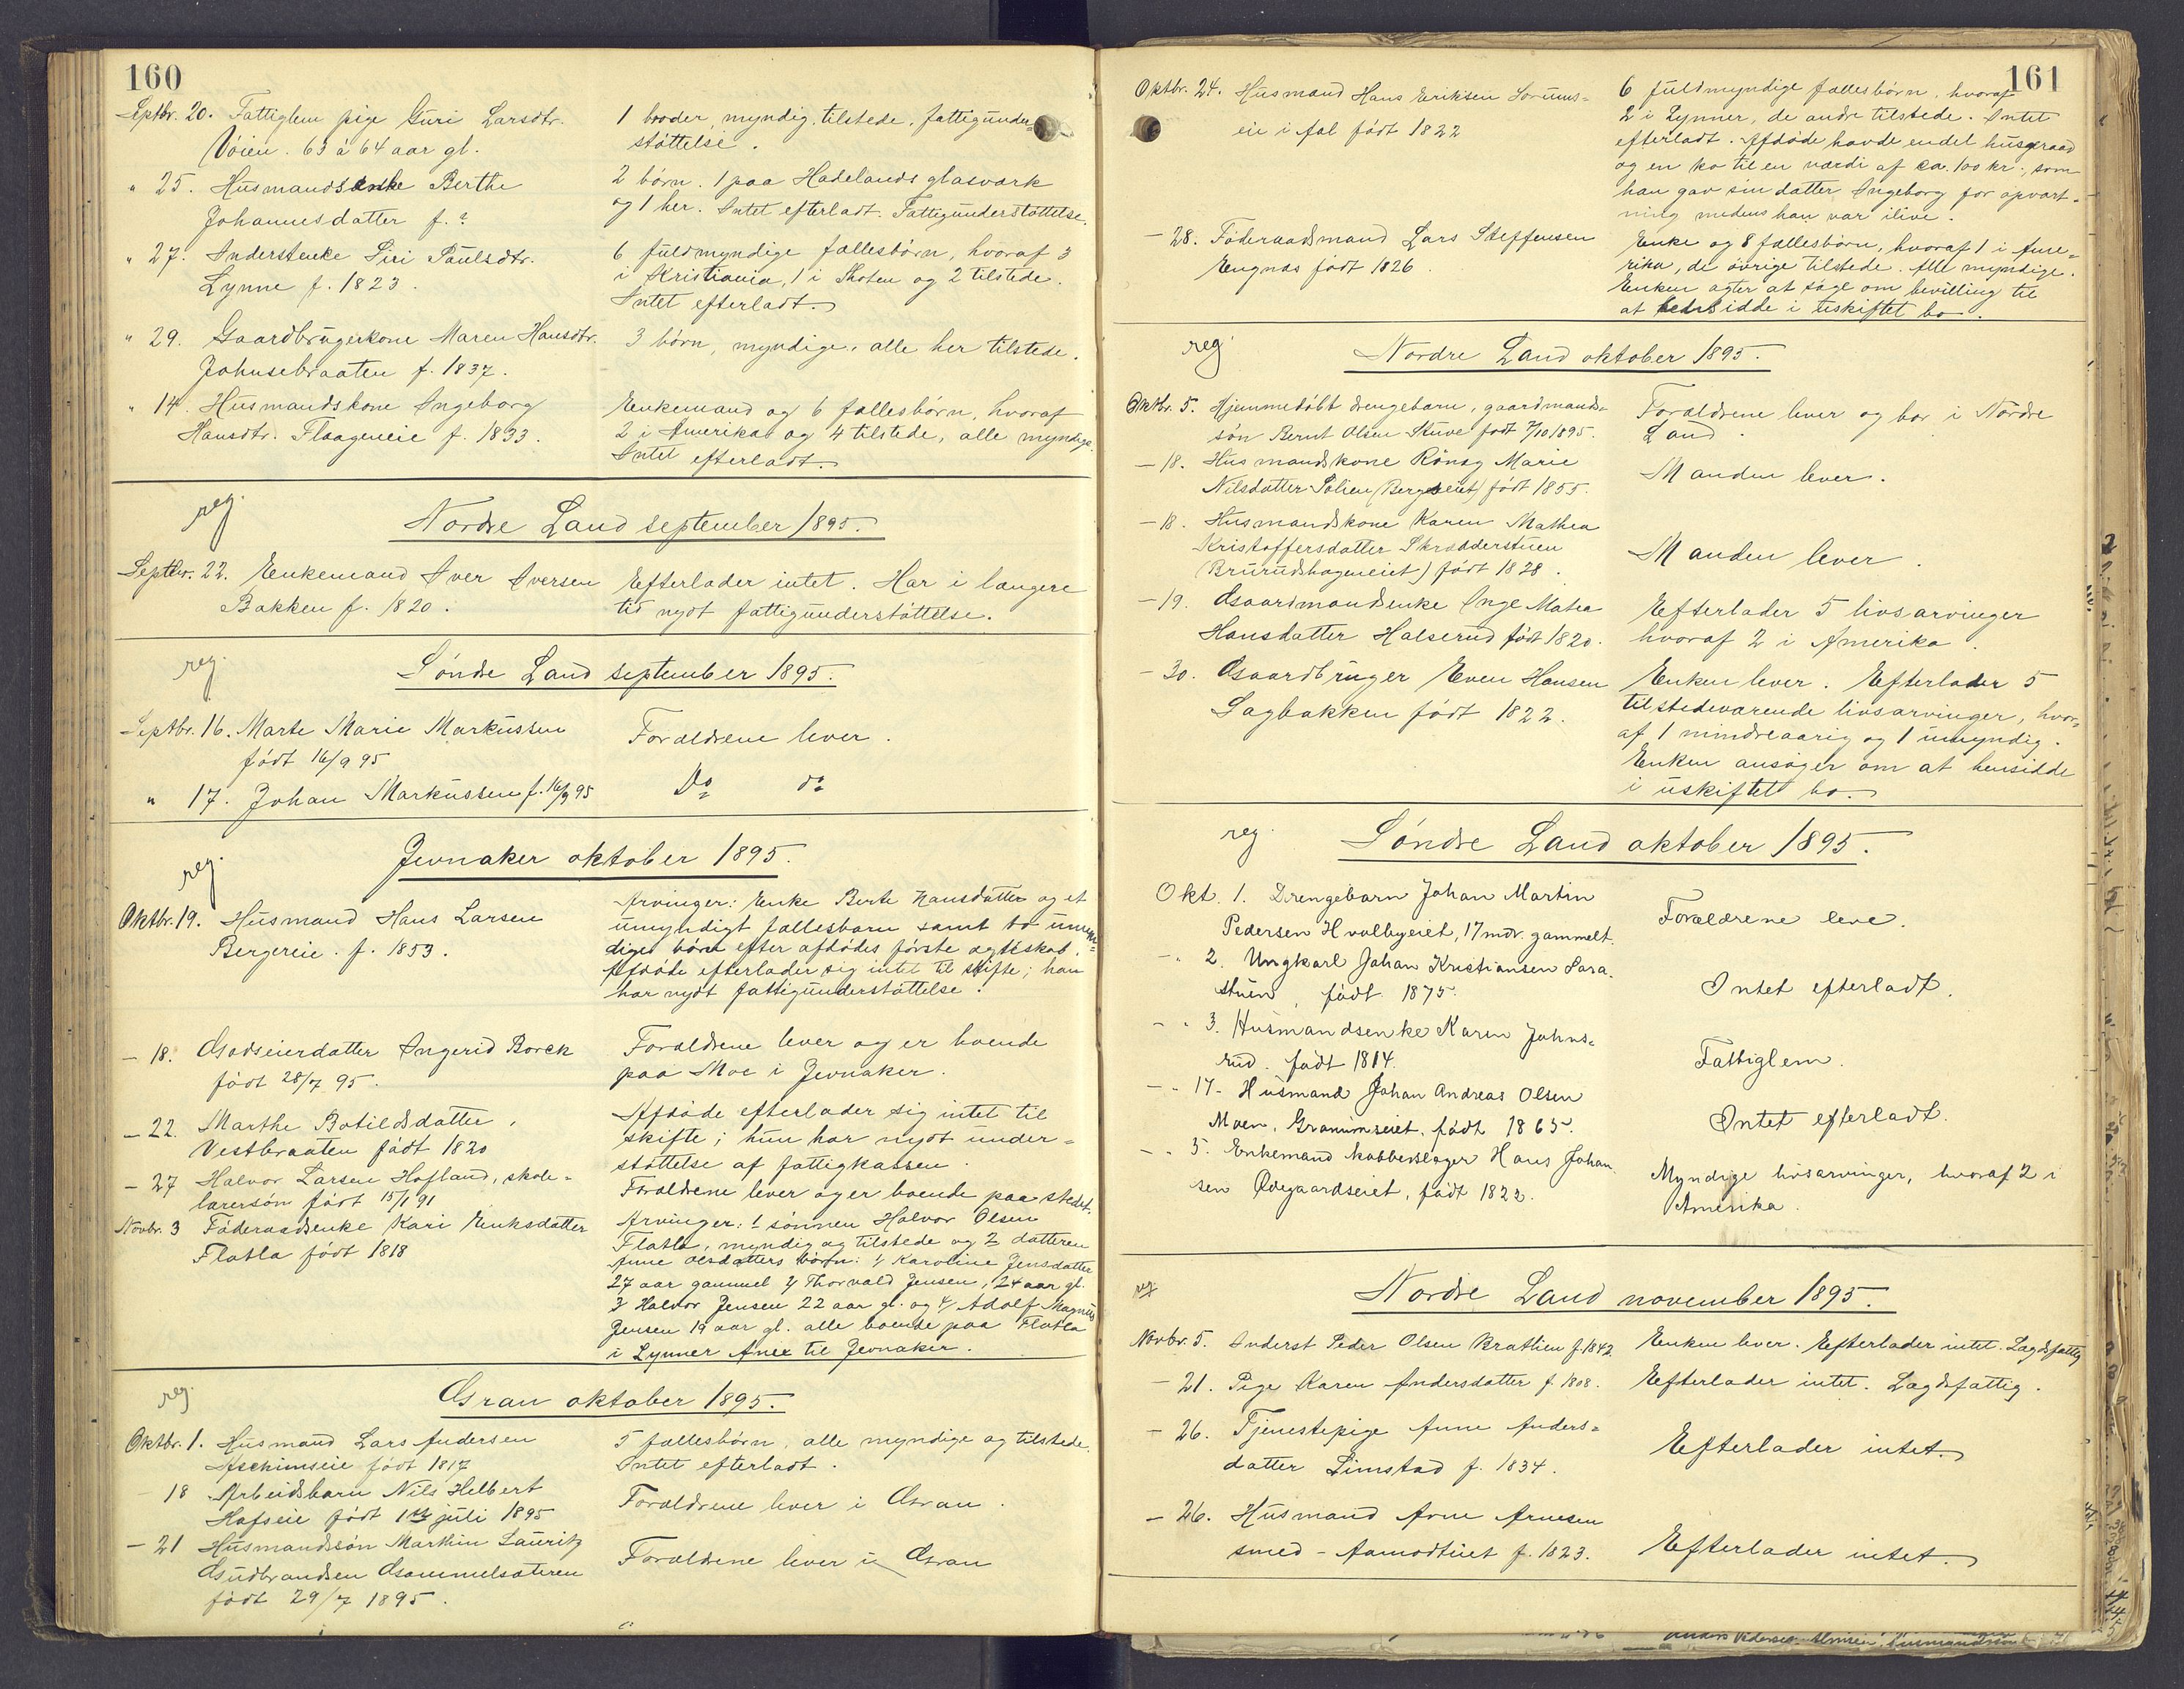 160
Septbr. 20. Fattiglem pige Guri Larsdtr.
Vöien. 63 à 64 aar gl.
1 broder, myndig, tilstede, fattigunder=
støttelse.
" 25. Husmandsenke Berthe
Johannesdatter f. ?
2 børn. 1 paa Hadelands glasværk
og 1 her. Intet efterladt. Fattigunderstøttelse.
" 27. Inderstenke Siri Paulsdtr.
Lynne f. 1823.
6 fuldmyndige fællesbørn, hvoraf 3
i Kristiania, 1 i Thoten og 2 tilstede.
Intet efterladt.
" 29. Gaardbrugerkone Maren Hansdtr.
Johnsebraaten f. 1837.
3 børn, myndige, alle her tilstede.
" 14. Husmandskone Ingeborg
Hansdtr. Flaageneie f. 1833.
Enkemand og 6 fællesbørn, hvoraf
2 i Amerika og 4 tilstede, alle myndige.
Intet efterladt.
reg.
Nordre Land september 1895.
Septbr. 22. Enkemand Iver Iversen
Bakken f. 1820.
Efterlader intet. Har i længere
tid nydt fattigunderstøttelse.
reg.
Søndre Land september 1895.
Septbr. 16. Marte Marie Markussen
født 16/9 95
Forældrene lever.
" 17. Johan Markussen f. 16/9 95
Do do
reg.
Jevnaker oktober 1895.
Oktbr. 19. Husmand Hans Larsen
Bergereie. f. 1853.
Arvinger: Enke Berte Hansdatter og et
umyndigt fællesbarn samt to umyn=
diges børn efter afdødes første ægteskab.
Afdøde efterlader sig intet til skifte; han
har nydt fattigunderstøttelse.
- 18. Godseierdatter Ingerid Borck
født 28/7 95.
Forældrene lever og er boende
paa Moe i Jevnaker.
- 22. Marthe Botildsdatter,
Vestbraaten født 1820
Afdøde efterlader sig intet til
skifte; hun har nydt under=
støttelse af fattigkassen.
- 27 Halvor Larsen Hofland, skole=
lærersøn født 15/1 91
Forældrene lever og er boende paa stedet.
Novbr. 3 Føderaadsenke Kari Eriksdatter
Flatla født 1818
Arvinger: 1 sønnen Halvor Olsen
Flatla, myndig og tilstede og 2 datteren
Anne Olsdatters børn: 1/ Karoline Jensdatter
27 aar gammel 2/ Thorvald Jensen, 24 aar gl.
3 Halvor Jensen 22 aar gl. og 4/ Adolf Magnus
Jensen 19 aar gl. alle boende paa Flatla
i Lynner Anex til Jevnaker.
reg.
Gran oktober 1895.
Oktbr. 1. Husmand Lars Andersen
Aschimseie født 1817
5 fællesbørn, alle myndige og tilstede.
Intet efterladt.
18 Arbeidsbarn Nils Helbert
Hofseie født 1ste juli 1895
Forældrene lever i Gran.
- 21 Husmandssøn Marthin Lauritz
Gudbrandsen Gammelsæteren
født 29/7 1895.
Forældrene lever i Gran
161
Oktbr. 24. Husmand Hans Eriksen Sorums=
eie i Aal født 1822
6 fuldmyndige fællesbørn, hvoraf
2 i Lynner, de andre tilstede. Intet
efterladt. Afdøde havde endel husgeraad
og en ko til en værdi af ca. 100 kr., som
han gav sin datter Ingeborg for opvart=
ning medens han var ilive.
- 28. Føderaadsmand Lars Steffensen
Engnæs født 1826.
Enke og 8 fællesbørn, hvoraf 1 i Ame=
rika, de øvrige tilstede. Alle myndige.
Enken agter at søge om bevilling til
at hensidde i uskiftet bo.
reg.
Nordre Land oktober 1895.
Oktbr. 5. Hjemmedøbt drengebarn, gaardmands=
søn Bernt Olsen Stuve født 7/10 1895.
Forældrene lever og bor i Nordre
Land.
- 18. Husmandskone Rønog Marie
Nilsdatter Solien (Bergseiet) født 1855.
Manden lever.
- 18. Husmandskone Karen Mathea
Kristoffersdatter Skrædderstuen
(Brurudshageneiet) født 1828.
Manden lever.
- 19. Gaardmandsenke Inge Matea
Hansdatter Halserud født 1820.
Efterlader 5 livsarvinger
hvoraf 2 i Amerika.
- 30. Gaardbruger Even Hansen
Sagbakken født 1822.
Enken lever. Efterlader 5
tilstedeværende livsarvinger, hvor=
af 1 mindreaarig og 1 umyndig.
Enken ansøger om at hensidde
i uskiftet bo.
reg.
Søndre Land oktober 1895.
Okt. 1. Drengebarn Johan Martin
Pedersen Hvalbyeiet, 17 mdr. gammelt.
Forældrene leve.
- " 2. Ungkarl Johan Kristiansen Sara=
stuen, født 1875.
Intet efterladt.
- " 3. Husmandsenke Karen Johns=
rud. født 1814.
Fattiglem.
- " 17. Husmand Johan Andreas Olsen
Moen, Granumseiet, født 1865.
Intet efterladt.
- " 5. Enkemand kobberslager Hans Johan
sen Ødegaardseiet, født 1822.
Myndige livsarvinger, hvoraf 2 i
Amerika.
reg.
Nordre Land november 1895.
Novbr. 5. Inderst Peder Olsen Bratlien f. 1842
Enken lever. Efterlader intet. Lægdsfattig
- 21. Pige Karen Andersdatter f. 1808.
Efterlader intet. Lægdsfattig.
- 26. Tjenestepige Anne Anders=
datter Limstad f. 1834.
Efterlader intet.
- 26. Husmand Arne Arnesen
smed - Aamodteiet f. 1823.
Efterlader intet.